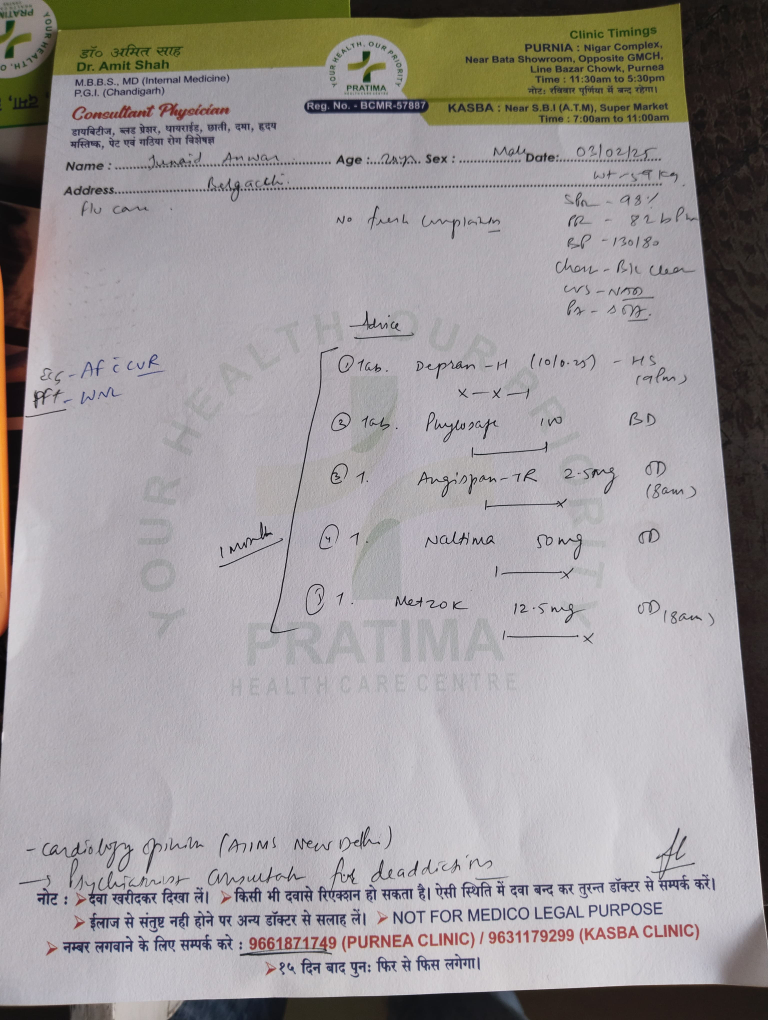 डॉ० अमित साह
Dr. Amit Shah
M.B.B.S., MD (Internal Medicine)
P.G.I. (Chandigarh)
Consultant Physician
डायबिटीज, ब्लड प्रेसर, थायराईड, छाती, दमा, हृदय
मस्तिष्क, पेट एवं गठिया रोग विशेषज्ञ
YOUR HEALTH, OUR PRIORITY
PRATIMA
Reg. No. - BCMR-57887
Clinic Timings
PURNIA : Nigar Complex,
Near Bata Showroom, Opposite GMCH,
Line Bazar Chowk, Purnea
Time : 11:30am to 5:30pm
नोट: रविवार पूर्णिया में बन्द रहेगा।
KASBA : Near S.B.I (A.T.M), Super Market
Time : 7:00am to 11:00am
Name : Junaid Anwar Age : Sex : Male Date: 03/02/25
Address Belgachi.
Wt - 59 kg
SPO2 - 98%
PR - 82 bpm
BP - 130/80
Chest - B/L clear
CVS - NAD
No fresh complaints
Advice
AF c CVR
PFT - WNL
① Tab. Depran - H (10/0.25) - HS
(9pm)
x - x - 1
② Tab. Phylosafe 100 BD
③ T. Angispan - TR 2.5mg OD
(8am)
④ T. Naltima 50mg OD
⑤ T. Metzok 12.5mg OD (8am)
1 month
YOUR HEALTH OUR PRIORITY
PRATIMA
HEALTH CARE CENTRE
- cardiology opinion (AIIMS New Delhi)
→ Psychiatrist consultation for deaddictions
नोट : ➢दवा खरीदकर दिखा लें। ➢किसी भी दवासे रिएक्शन हो सकता है। ऐसी स्थिति में दवा बन्द कर तुरन्त डॉक्टर से सम्पर्क करें।
➢ईलाज से संतुष्ट नही होने पर अन्य डॉक्टर से सलाह लें। ➢ NOT FOR MEDICO LEGAL PURPOSE
➢नम्बर लगवाने के लिए सम्पर्क करे : 9661871749 (PURNEA CLINIC) / 9631179299 (KASBA CLINIC)
➢१५ दिन बाद पुनः फिर से फिस लगेगा।